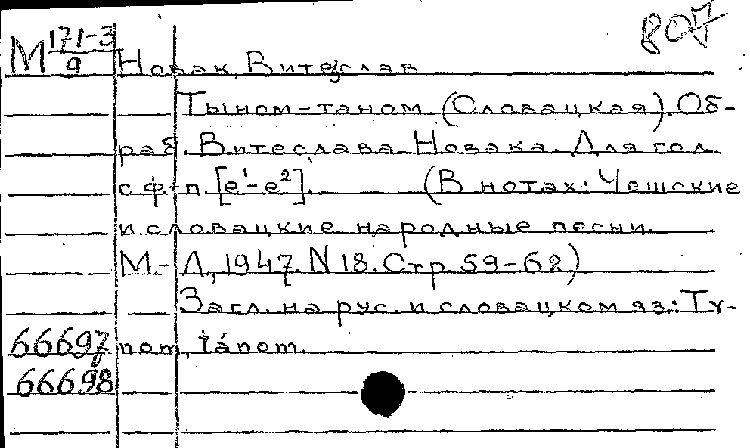 807
М 171-3/9 Новак, Витезслав
Тыном-таном (Словацкая). Об-
раб. Витеслава Новака. Для гол.
с ф-п. [e¹-e²]. (В нотах: Чешские
и словацкие народные песни.
М.-Л., 1947. N 18. Стр. 59-62)
Загл. на рус. и словацком яз.: Ty-
66697 nom, tánom.
66698